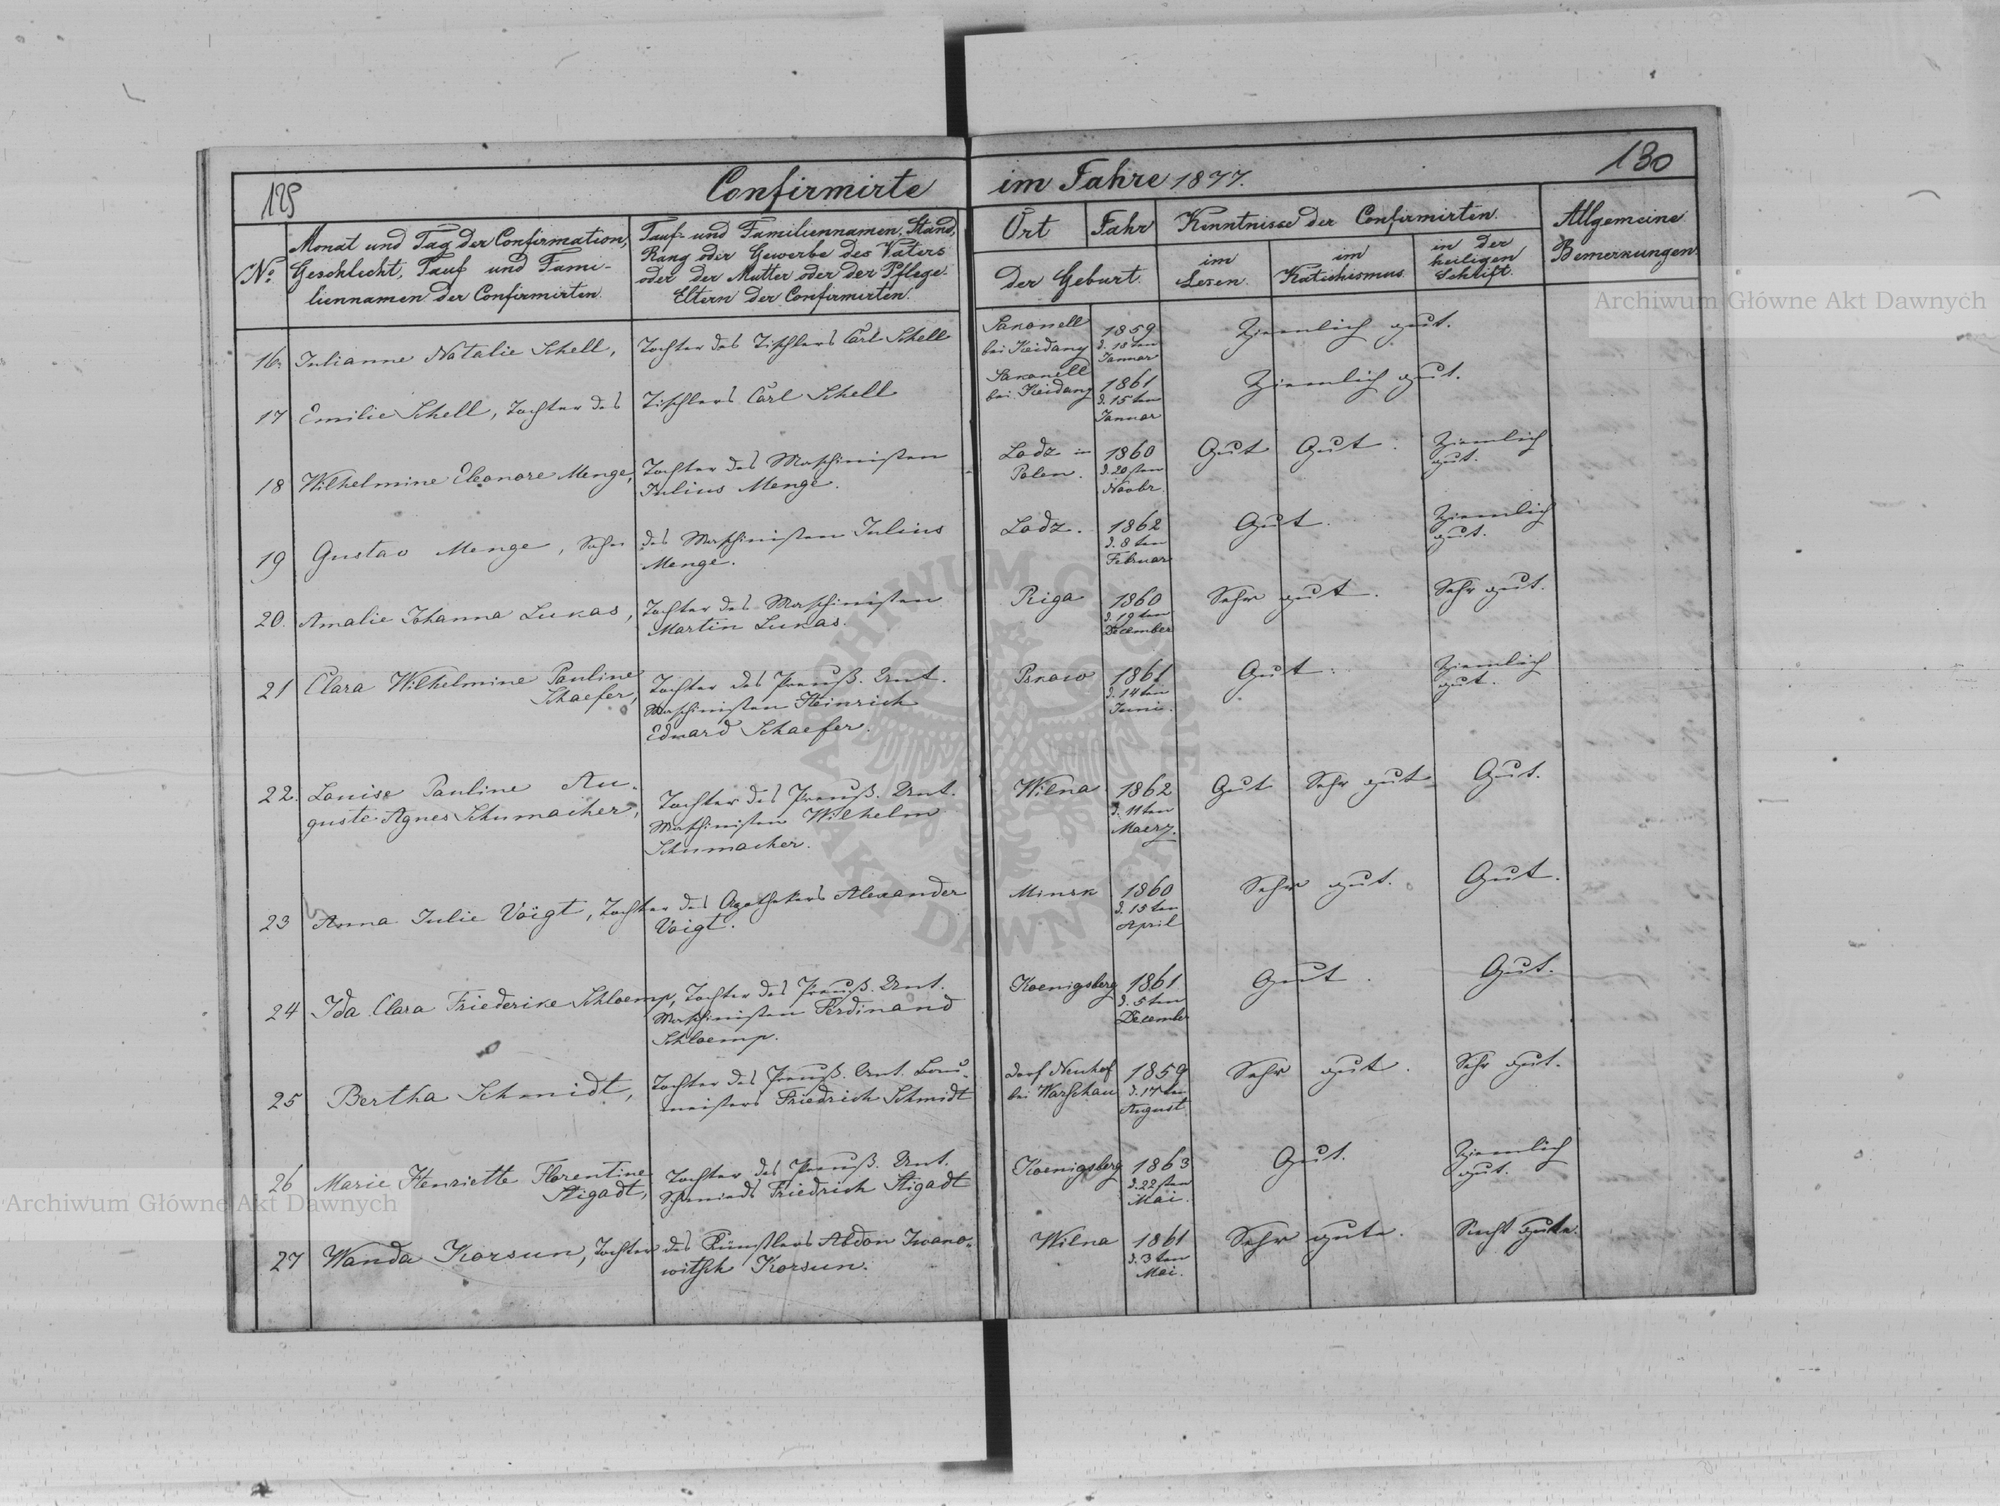 129
Confirmirte
im Jahre 1877.
130
No.
Monat und Tag der Confirmation,
Geschlecht, Tauf und Fami-
liennamen der Confirmirten.
Tauf- und Familiennamen, Stand,
Rang oder Gewerbe des Vaters
oder der Mutter oder der Pflege-
Eltern der Confirmirten.
Ort
Jahr
der Geburt.
Kenntnisse der Confirmirten.
im
Lesen.
im
Katechismus.
in der
heiligen
Schrift.
Allgemeine
Bemerkungen.
16. Julianne Natalie Schell,
Tochter des Tischlers Carl Schell
bei Keidany
1859
d. 18ten
Januar
Ziemlich gut.
17 Emilie Schell, Tochter des
Tischlers Carl Schell
bei Keidany
1861
d. 15ten
Januar
Ziemlich gut.
18 Wilhelmine Eleonore Menge,
Tochter des Maschinisten
Julius Menge.
Lodz in
Polen.
1860
d. 20sten
Novbr.
Gut Gut.
Ziemlich
gut.
19 Gustav Menge, Sohn
des Maschinisten Julius
Menge.
Lodz.
1862
d. 8ten
Februar
Gut.
Ziemlich
gut.
20. Amalie Johanna Lukas,
Tochter des Maschinisten
Martin Lukas.
Riga
1860
d. 19ten
December
Sehr gut.
Sehr gut.
21 Clara Wilhelmine Pauline
Schaefer,
Tochter des Preuß. Unt.
Maschinisten Heinrich
Eduard Schaefer.
Pskow
1861
d. 14ten
Juni.
Gut.
Ziemlich
gut.
22. Louise Pauline Au-
guste Agnes Schumacher,
Tochter des Preuß. Unt.
Maschinisten Wilhelm
Schumacher.
Wilna
1862
d. 11ten
Maerz.
Gut Sehr gut
Gut.
23 Anna Julie Voigt, Tochter des Apothekers Alexander
Voigt.
Minsk
1860
d. 15ten
April
Sehr gut.
Gut.
24 Ida Clara Friederike Schloemp, Tochter des Preuß. Unt.
Maschinisten Ferdinand
Schloemp.
Koenigsberg
1861.
d. 5ten
December
Gut.
Gut.
25 Bertha Schmidt,
Tochter des Preuß. Unt. Bau-
meisters Friedrich Schmidt
Dorf Neuhof
bei Warschau
1859
d. 17ten
August.
Sehr gut.
Sehr gut.
26 Marie Henriette Florentine
Stigadt,
Tochter des Preuß. Unt.
Schmieds Friedrich Stigadt
Koenigsberg
1863
d. 22sten
Mai.
Gut.
Ziemlich
gut.
27 Wanda Korsun, Tochter des Künstlers Abdon Iwano-
witsch Korsun.
Wilna
1861
d. 3ten
Mai.
Sehr gute.
gute.
Archiwum Główne Akt Dawnych
Archiwum Główne Akt Dawnych
ARCHIWUM GŁÓWNE
AKT DAWNYCH